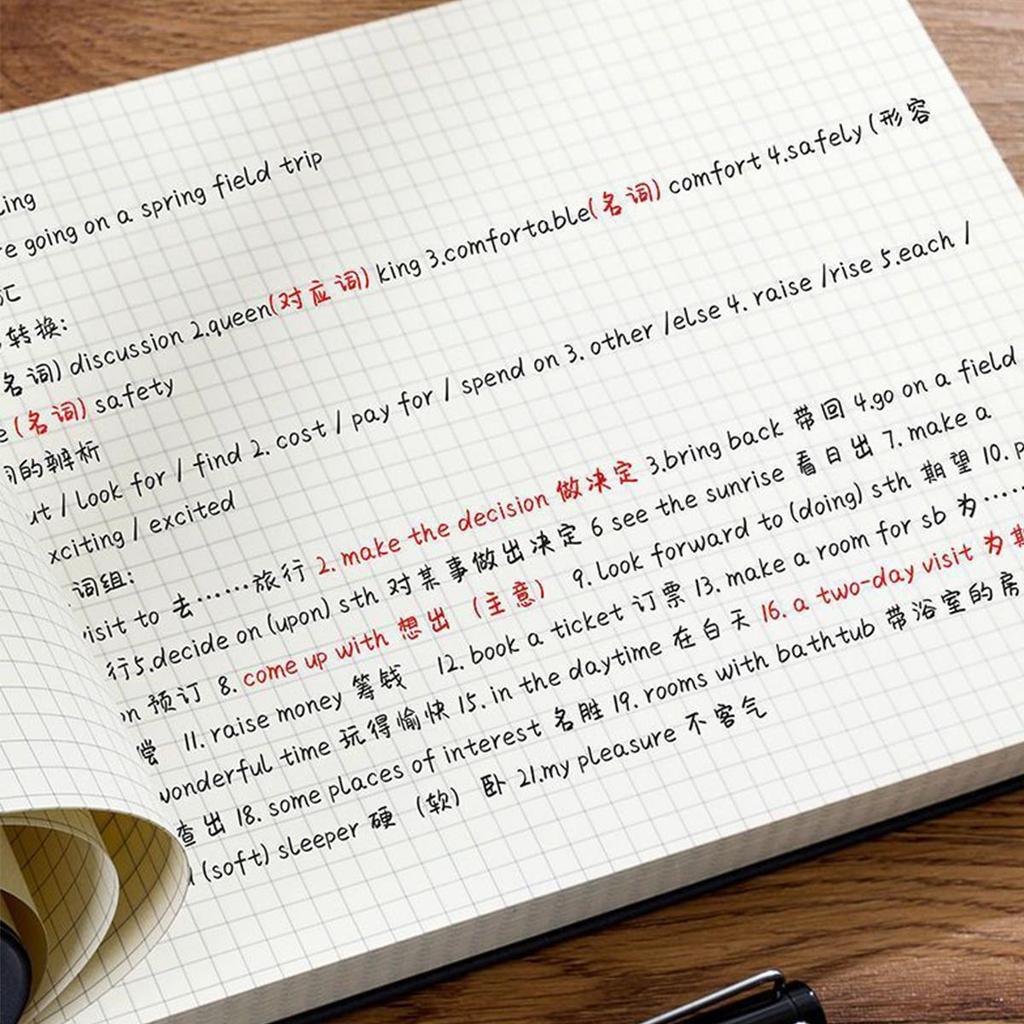 re going on a spring field trip
汇
转换:
名词) discussion 2.queen(对应词) king 3.comfortable(名词) comfort 4.safely (形容
e (名词) safety
词的辨析
ut / look for / find 2. cost / pay for / spend on 3. other /else 4. raise /rise 5.each /
xciting / excited
词组:
isit to 去……旅行 2. make the decision 做决定 3.bring back 带回 4.go on a field
行5.decide on (upon) sth 对某事做出决定 6 see the sunrise 看日出 7. make a
on 预订 8. come up with 想出 (主意) 9.look forward to (doing) sth 期望 10. p
偿 11. raise money 筹钱 12. book a ticket 订票 13. make a room for sb 为……
wonderful time 玩得愉快 15. in the daytime 在白天 16. a two-day visit 为期
查出 18. some places of interest 名胜 19. rooms with bathtub 带浴室的房
(soft) sleeper 硬 (软) 卧 21.my pleasure 不客气